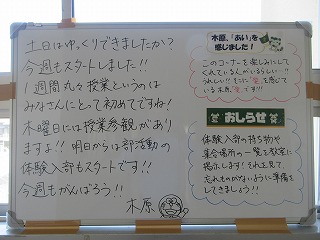 土日はゆっくりできましたか?
今週もスタートしました!!
1週間丸々授業というのは
みなさんにとって初めてですね!
木曜日には授業参観があり
ますよ!! 明日からは部活動の
体験入部もスタートです!!
今週もがんばろう!!
木原
木原、「あい」を
感じました!
このコーナーを楽しみにして
くれている人がいるらしい!!
うれしい!!そこに"愛"を感じて
いる木原"愛"です!!!
おしらせ
体験入部の持ち物や
集合場所の一覧を教室に
掲示します!それを見て、
忘れものがないように準備を
してきましょう!!